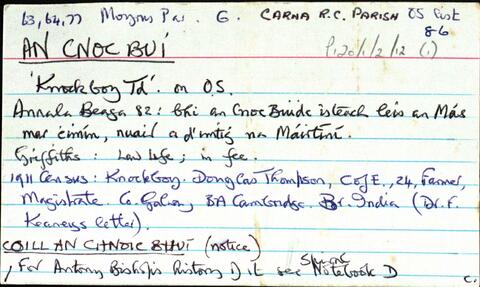 63, 64, 77 Moyrus Par. G. CARNA R.C. PARISH OS list 86
AN CNOC BUÍ P120/1/2/12 (1)
'Knockboy Td' on O.S.
Annála Beaga 82: bhí an Cnoc Buidhe isteach leis an Más
mar cimín, nuair a d'imtig na Máirtíní.
Griffiths: Law Life; in fee.
1911 Census: Knockboy. Douglas Thompson, C of E., 24, Farmer,
Magistrate Co. Galway BA Cambridge. Br. India (Dr. F.
Kearneys letter).
COILL AN CHNOIC BHUÍ (notice)
, For Antony Bishop's history of it see Notebook D
C.